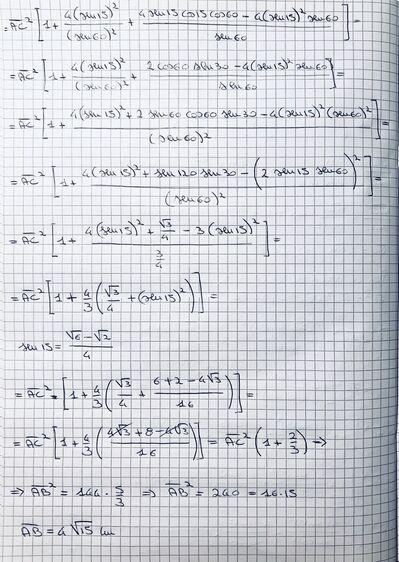 = AC̅² [1 + 4(sen15)²/(sen60)² + (4sen15 cos15 cos60 − 4(sen15)² sen60)/sen60] =
= AC̅² [1 + 4(sen15)²/(sen60)² + (2cos60 sen30 − 4(sen15)² sen60)/sen60] =
= AC̅² [1 + (4(sen15)² + 2 sen60 cos60 sen30 − 4(sen15)² (sen60)²)/(sen60)²] =
= AC̅² [1 + (4(sen15)² + sen120 sen30 − (2 sen15 sen60)²)/(sen60)²] =
= AC̅² [1 + (4(sen15)² + √3/4 − 3(sen15)²)/(3/4)] =
= AC̅² [1 + 4/3 (√3/4 + (sen15)²)] =
sen15 = (√6 − √2)/4
= AC̅² · [1 + 4/3 (√3/4 + (6+2−4√3)/16)] =
= AC̅² [1 + 4/3 ((4√3 + 8 − 4√3)/16)] = AC̅² (1 + 2/3) ⇒
⇒ AB̅² = 144 · 5/3 ⇒ AB̅² = 240 = 16·15
AB̅ = 4√15 cm